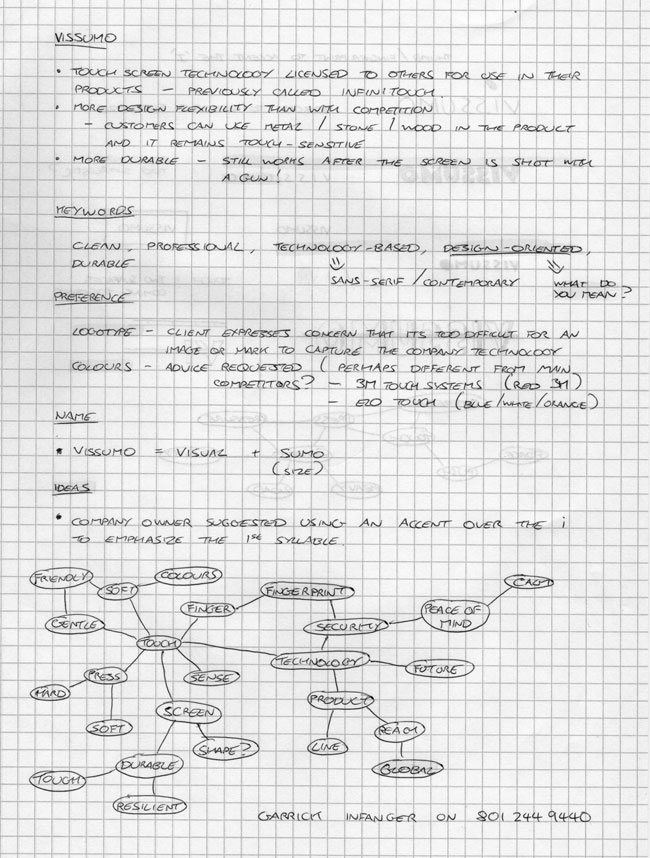 VISSUMO
• TOUCH SCREEN TECHNOLOGY LICENSED TO OTHERS FOR USE IN THEIR
PRODUCTS – PREVIOUSLY CALLED INFINITOUCH.
• MORE DESIGN FLEXIBILITY THAN WITH COMPETITION
– CUSTOMERS CAN USE METAL / STONE / WOOD IN THE PRODUCT
AND IT REMAINS TOUCH-SENSITIVE
• MORE DURABLE – STILL WORKS AFTER THE SCREEN IS SHOT WITH
A GUN!
KEYWORDS
CLEAN, PROFESSIONAL, TECHNOLOGY-BASED, DESIGN-ORIENTED,
DURABLE
SANS-SERIF / CONTEMPORARY
WHAT DO
YOU MEAN?
PREFERENCE
LOGOTYPE – CLIENT EXPRESSES CONCERN THAT ITS TOO DIFFICULT FOR AN
IMAGE OR MARK TO CAPTURE THE COMPANY TECHNOLOGY
COLOURS – ADVICE REQUESTED (PERHAPS DIFFERENT FROM MAIN
COMPETITORS? – 3M TOUCH SYSTEMS (RED 3M)
– ELO TOUCH (BLUE/WHITE/ORANGE)
NAME
• VISSUMO = VISUAL + SUMO
(SIZE)
IDEAS
• COMPANY OWNER SUGGESTED USING AN ACCENT OVER THE i
TO EMPHASIZE THE 1st SYLLABLE.
FRIENDLY
SOFT
COLOURS
GENTLE
FINGER
FINGERPRINT
CALM
PEACE OF
MIND
SECURITY
TOUCH
TECHNOLOGY
FUTURE
HARD
PRESS
SENSE
SOFT
SCREEN
PRODUCT
SHAPE?
LINE
REACH
GLOBAL
DURABLE
TOUGH
RESILIENT
GARRICK INFANGER ON 801 244 9440